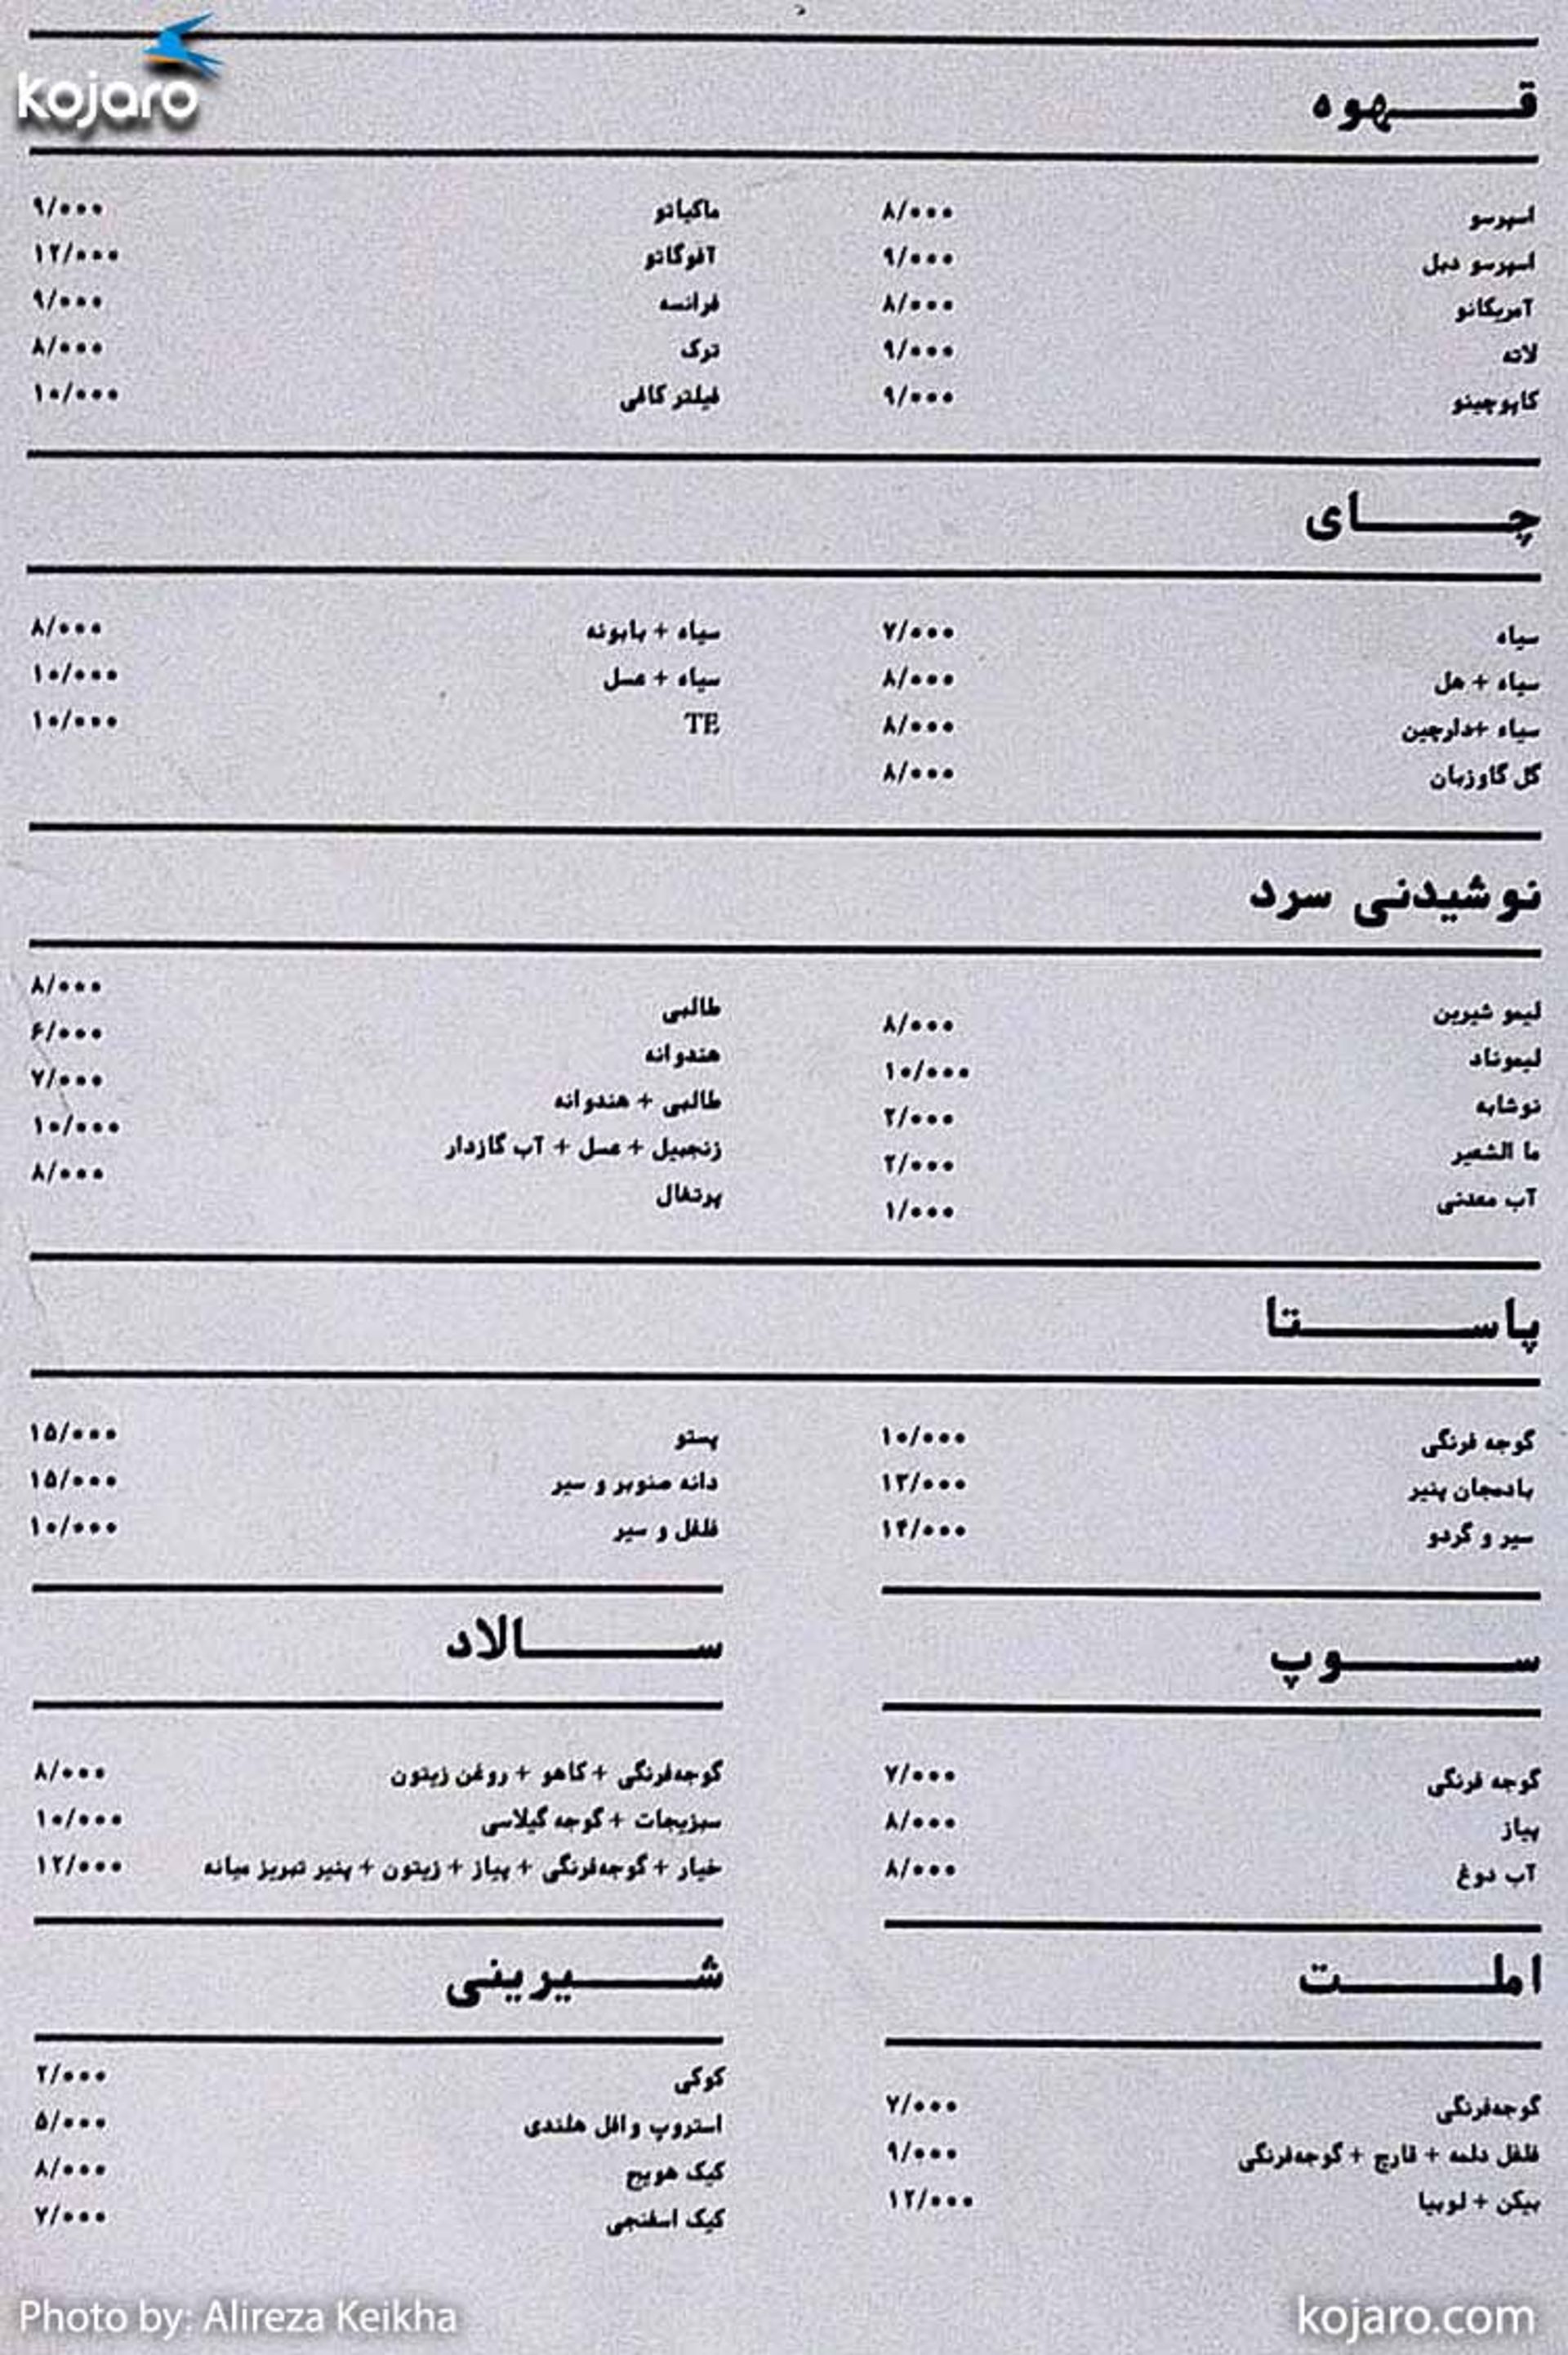 kojaro
قهوه
اسپرسو ۸/۰۰۰
اسپرسو دبل ۹/۰۰۰
آمریکانو ۸/۰۰۰
لاته ۹/۰۰۰
کاپوچینو ۹/۰۰۰
ماکیاتو ۹/۰۰۰
آفوگاتو ۱۲/۰۰۰
فرانسه ۹/۰۰۰
ترک ۸/۰۰۰
فیلتر کافی ۱۰/۰۰۰
چای
سیاه ۷/۰۰۰
سیاه + هل ۸/۰۰۰
سیاه +دارچین ۸/۰۰۰
گل گاوزبان ۸/۰۰۰
سیاه + بابونه ۸/۰۰۰
سیاه + عسل ۱۰/۰۰۰
TE ۱۰/۰۰۰
نوشیدنی سرد
لیمو شیرین ۸/۰۰۰
لیموناد ۱۰/۰۰۰
نوشابه ۲/۰۰۰
ما الشعیر ۲/۰۰۰
آب معدنی ۱/۰۰۰
طالبی ۸/۰۰۰
هندوانه ۶/۰۰۰
طالبی + هندوانه ۷/۰۰۰
زنجبیل + عسل + آب گازدار ۱۰/۰۰۰
پرتغال ۸/۰۰۰
پاستا
گوجه فرنگی ۱۰/۰۰۰
بادمجان پنیر ۱۳/۰۰۰
سیر و گردو ۱۴/۰۰۰
پستو ۱۵/۰۰۰
دانه صنوبر و سیر ۱۵/۰۰۰
فلفل و سیر ۱۰/۰۰۰
سوپ
گوجه فرنگی ۷/۰۰۰
پیاز ۸/۰۰۰
آب دوغ ۸/۰۰۰
سالاد
گوجه‌فرنگی + کاهو + روغن زیتون ۸/۰۰۰
سبزیجات + گوجه گیلاسی ۱۰/۰۰۰
خیار + گوجه‌فرنگی + پیاز + زیتون + پنیر تبریز میانه ۱۲/۰۰۰
املت
گوجه‌فرنگی ۷/۰۰۰
فلفل دلمه + قارچ + گوجه‌فرنگی ۹/۰۰۰
بیکن + لوبیا ۱۲/۰۰۰
شیرینی
کوکی ۲/۰۰۰
استروپ وافل هلندی ۵/۰۰۰
کیک هویج ۸/۰۰۰
کیک اسفنجی ۷/۰۰۰
Photo by: Alireza Keikha
kojaro.com